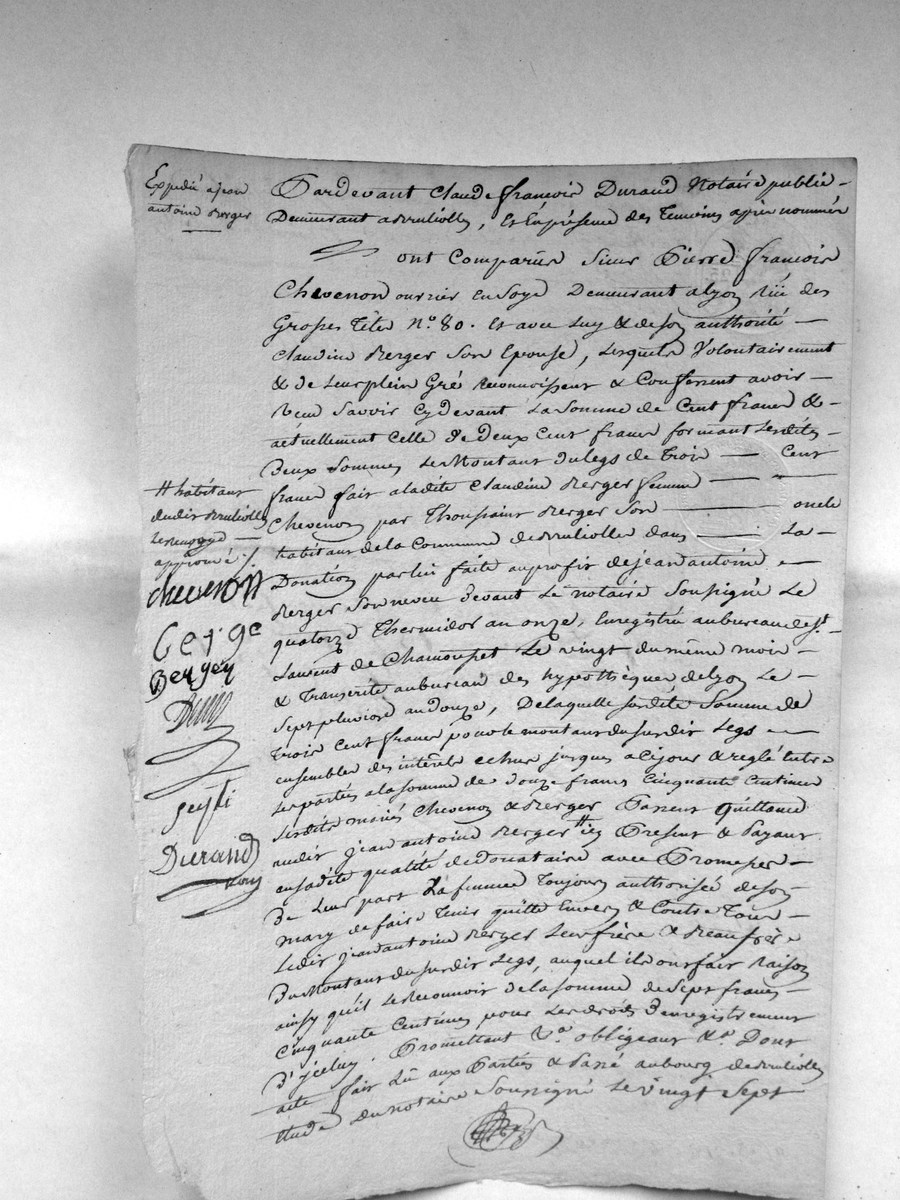 Expedié a jean
antoine Berger
Pardevant Claude françois Durand Notaire public
Demeurant a Brulliolles, et En présence des Temoins après nommés
ont Comparus Sieur Pierre françois
Chevenon ouvrier En Soye Demeurant a Lyon Rüe des
Grosses Têtes N.o 80. et avec Luy & de son authorité
Claudine Berger Son Epouse, Lesquels Volontairement
& de Leur plein Gré Reconnoissent & Confessent avoir
Reçu Savoir Cy devant La Somme de Cent francs &
actuellement Celle de Deux Cent francs formant Lesdites
Deux Sommes Le Montant du Legs de Trois Cent
francs fait a ladite Claudine Berger femme
Chevenon par Thoussaint Berger Son oncle
habitant de la Commune de Brulliolles dans La
Donation par lui faite au profit de jean antoine
Berger Son neveu Devant Le Notaire Soussigné Le
quatorze Thermidor an onze, Enregistrée au bureau de St
Laurent de Chamousset Le vingt du même mois
& Transcrite au bureau des hypothèques de Lyon Le
Sept pluviose an Douze, De laquelle Susdite Somme de
Trois Cent francs pour le montant du Susdit Legs
ensembles des intérêts echus jusques a Ce jour & réglé Entre
Les parties a la somme de Douze francs Cinquante Centimes
Lesdits mariés Chevenon & Berger Passent Quittance
audit jean antoine Berger # icy Present & Payant
en sa dite qualité de Donataire avec Promesses
De Leur part La femme Toujours authorisée de son
mary de faire Tenir quitte Envers & Contre Tous
Ledit jean antoine Berger Leur frère & Beaufrère
Du Montant du Susdit Legs, auquel ils ont fait Raison
ainsy qu'il Le Reconnoit de la somme de Sept francs
Cinquante Centimes pour Les droits D'enregistrement
D'icelui. Promettant &a. obligeant &a. Dont
acte fait Lû aux Parties & Passé au bourg de Brulliolles
Etude du Notaire Soussigné Le vingt Sept
# habitant
dudit Brulliolles
Le Renvoye
approuvé ./.
chevenon
Berger
Durand